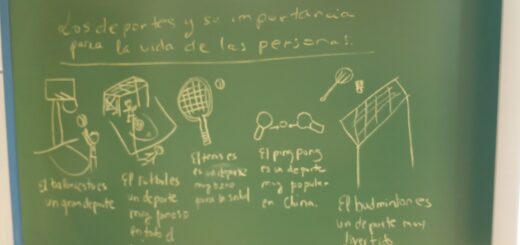 Los deportes y su importancia
para la vida de las personas.
El baloncesto es
un gran deporte
El futbol es
un deporte
muy famoso
en todo el
El tenis es
es un deporte
muy bueno
para la salud
El ping pong
es un deporte
muy popular
en China.
El budminton es
un deporte muy
divertido